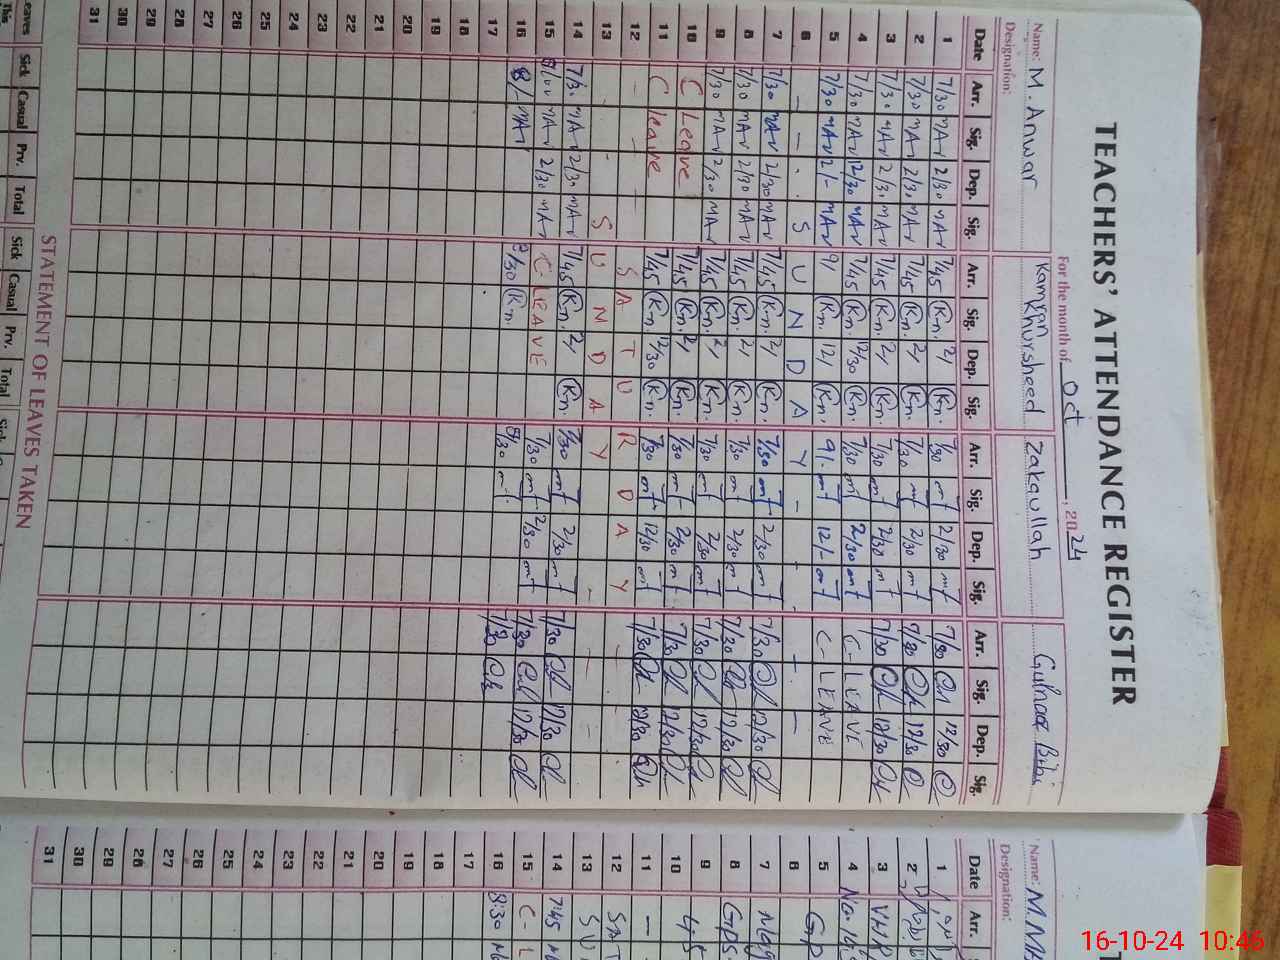 TEACHERS' ATTENDANCE REGISTER
For the month of Oct, 2024
Name: M. Anwar Kamran Khursheed Zakaullah Gulnaz Bibi
Designation:
Date Arr. Sig. Dep. Sig. Arr. Sig. Dep. Sig. Arr. Sig. Dep. Sig. Arr. Sig. Dep. Sig.
1 7/30 MAr 2/30 MAr 7/45 Kn. 2/ Kn. 7/30 mf 2/30 mf 7/30 12/30
2 7/30 MAr 2/30 MAr 7/45 Kn. 2/ Kn. 7/30 mf 2/30 mf 7/30 12/30
3 7/30 MAr 2/30 MAr 7/45 Kn. 2/ Kn. 7/30 mf 2/30 mf 7/30 12/30
4 7/30 MAr 12/30 MAr 7/45 Kn. 12/30 Kn. 7/30 mf 2/30 mf C- LEAVE
5 7/30 MAr 12/- MAr 9/ Kn. 12/ Kn. 9/- mf 12/- mf C- LEAVE
6 - - - S U N D A Y - - - -
7 7/30 MAr 2/30 MAr 7/45 Kn. 2/ Kn. 7/30 mf 2/30 mf 7/30 12/30
8 7/30 MAr 2/30 MAr 7/45 Kn. 2/ Kn. 7/30 mf 2/30 mf 7/30 12/30
9 7/30 MAr 2/30 MAr 7/45 Kn. 2/ Kn. 7/30 mf 2/30 mf 7/30 12/30
10 C Leave 7/45 Kn. 2/ Kn. 7/30 mf 2/30 mf 7/30 12/30
11 C leave 7/45 Kn. 12/30 Kn. 7/30 mf 12/30 mf 7/30 12/30
12 - - - S A T U R D A Y - -
13 S U N D A Y - - -
14 7/30 MAr 2/30 MAr 7/45 Kn. 2/ Kn. 7/30 mf 2/30 mf 7/30 12/30
15 MAr 2/30 MAr C LEAVE 7/30 mf 2/30 mf 7/30 12/30
16 8/- MAr 8/30 Kn. 8/30 mf 7/30
17
18
19
20
21
22
23
24
25
26
27
28
29
30
31
STATEMENT OF LEAVES TAKEN
Leaves This Sick Casual Prv. Total Sick Casual Prv. Total Sick
Name: M.
Designation:
Date Arr.
1
2
3
4 No.
5
6
7
8 GPS
9
10 45
11 -
12 SAT
13 SU
14 7:45
15 C- L
16 8:30
17
18
19
20
21
22
23
24
25
26
27
28
29
30
31
16-10-24 10:46